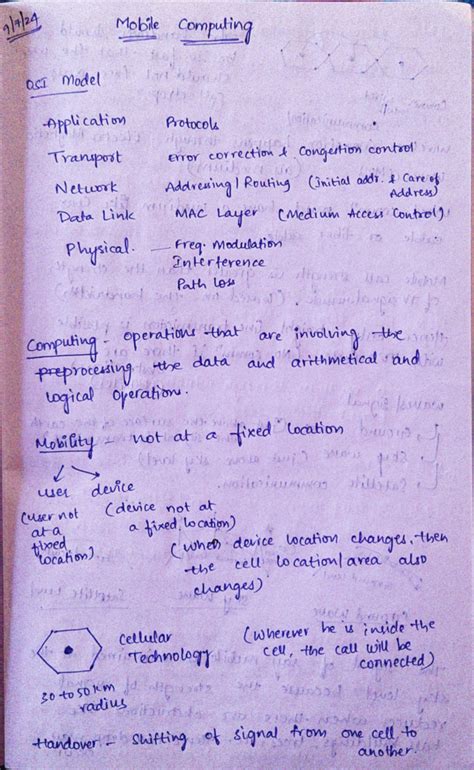 9/7/24
Mobile Computing
OSI Model
Application Protocols
Transport Error correction & Congestion control
Network Addressing / Routing (initial addr. & Care of Address)
Data Link MAC Layer (Medium Access Control)
Physical. — Freq. Modulation
Interference
Path Loss
Computing - operations that are involving the
preprocessing the data and arithmetical and
logical operation.
Mobility - not at a fixed location
user device
(user not at a fixed location)
(device not at a fixed location)
(when device location changes, then
the cell location/area also
changes)
Cellular
Technology
(Wherever he is inside the
cell, the call will be
connected)
30 to 50 km
radius
Handover - Shifting of signal from one cell to
another